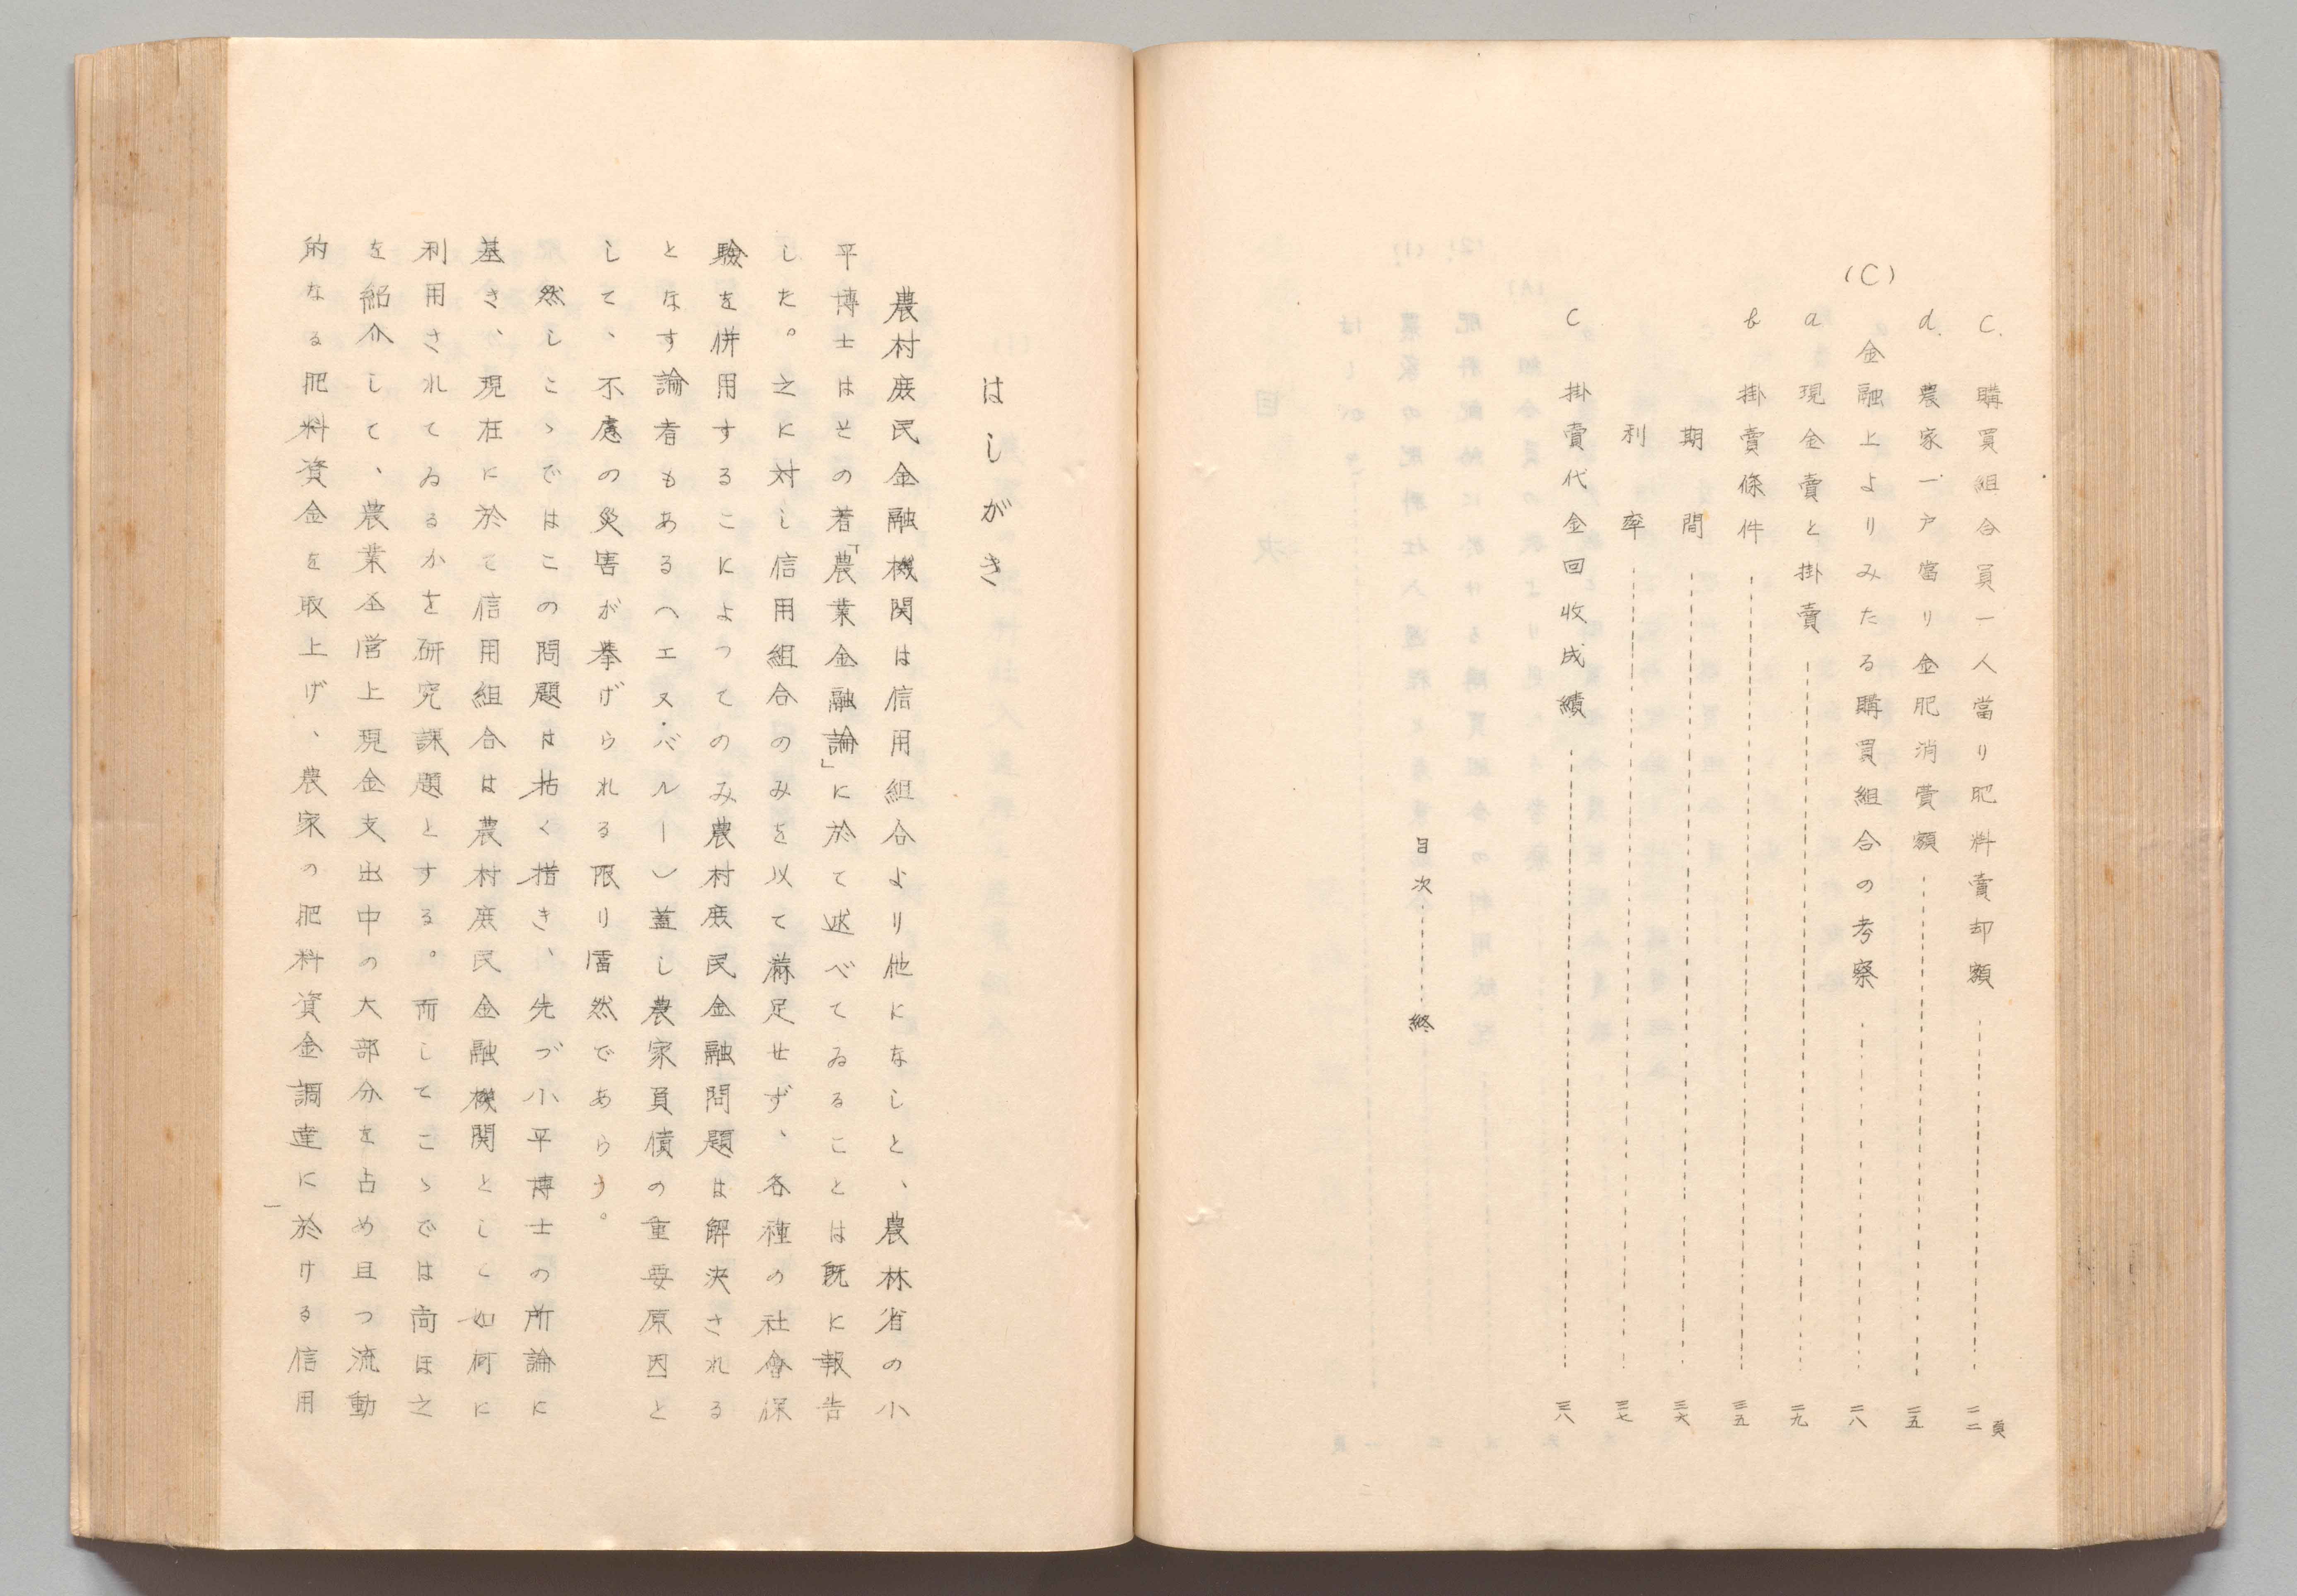 頁
C. 購買組合員一人當り肥料賣却額 二二
d. 農家一戸當り金肥消費額 二五
(C) 金融上よりみたる購買組合の考察 二八
a 現金賣と掛賣 二九
b 掛賣條件 三五
期間 三六
利率 三七
C 掛賣代金回收成績 三八
目次 終
はしがき
農村庶民金融機関は信用組合より他になしと、農林省の小
平博士はその著「農業金融論」に於て述べてゐることは既に報告
した。之に対し信用組合のみを以て滿足せず、各種の社會保
驗を併用するこによってのみ農村庶民金融問題は解決される
となす論者もある(エヌ・バルー)蓋し農家負債の重要原因と
して、不慮の災害が挙げられる限り當然であらう。
然しこゝではこの問題は姑く措き、先づ小平博士の所論に
基き、現在に於て信用組合は農村庶民金融機関として如何に
利用されてゐるかを研究課題とする。而してこゝでは尚ほ之
を紹介して、農業経営上現金支出中の大部分を占め且つ流動
的なる肥料資金を取上げ、農家の肥料資金調達に於ける信用
一